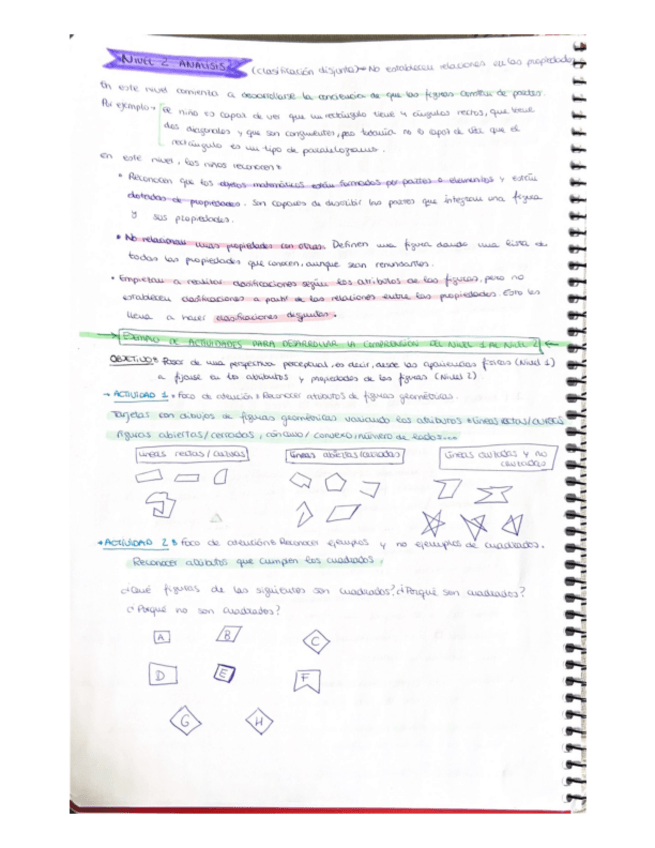 NIVEL 2 ANÁLISIS: (clasificación disjunta) → No establecen relaciones en las propiedades
En este nivel comienza a desarrollarse la conciencia de que las figuras constan de partes.
Por ejemplo → el niño es capaz de ver que un rectángulo tiene 4 ángulos rectos, que tiene
dos diagonales y que son congruentes, pero todavía no es capaz de ver que el
rectángulo es un tipo de paralelogramo.
En este nivel, los niños reconocen:
• Reconocen que los objetos matemáticos están formados por partes o elementos y están
dotados de propiedades. Son capaces de describir las partes que integran una figura
y sus propiedades.
• No relacionan unas propiedades con otras. Definen una figura dando una lista de
todas las propiedades que conocen, aunque sean
• Empiezan a realizar clasificaciones según los atributos de las figuras, pero no
establecen clasificaciones a partir de las relaciones entre las propiedades. Esto les
lleva a hacer clasificaciones disjuntas.
EJEMPLO DE ACTIVIDADES PARA DESARROLLAR LA COMPRENSIÓN DEL NIVEL 1 AL NIVEL 2
OBJETIVO: Pasar de una perspectiva perceptual, es decir, desde las apariencias físicas (Nivel 1)
a fijarse en los atributos y propiedades de las figuras (Nivel 2)
→ ACTIVIDAD 1: Foco de atención: Reconocer atributos de figuras geométricas.
Tarjetas con dibujos de figuras geométricas variando los atributos: líneas rectas/curvas
figuras abiertas/cerradas, cóncavo/convexo, número de lados...
Líneas rectas/curvas
Líneas abiertas/cerradas
Líneas cruzadas y no
cruzadas
→ ACTIVIDAD 2: Foco de atención: Reconocer ejemplos y no ejemplos de cuadrados.
Reconocer atributos que cumplen los cuadrados.
¿Qué figuras de las siguientes son cuadrados? ¿Porqué son cuadrados?
¿Porqué no son cuadrados?
A B C
D E F
G H